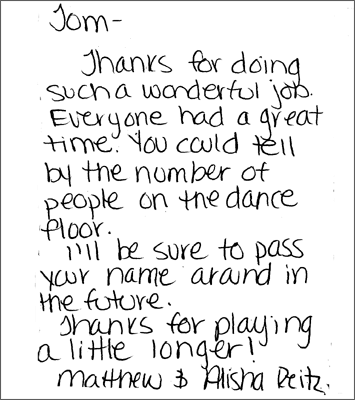 Tom-
Thanks for doing
such a wonderful job.
Everyone had a great
time. You could tell
by the number of
people on the dance
floor.
I'll be sure to pass
your name around in
the future.
Thanks for playing
a little longer!
Matthew & Alisha Deitz.